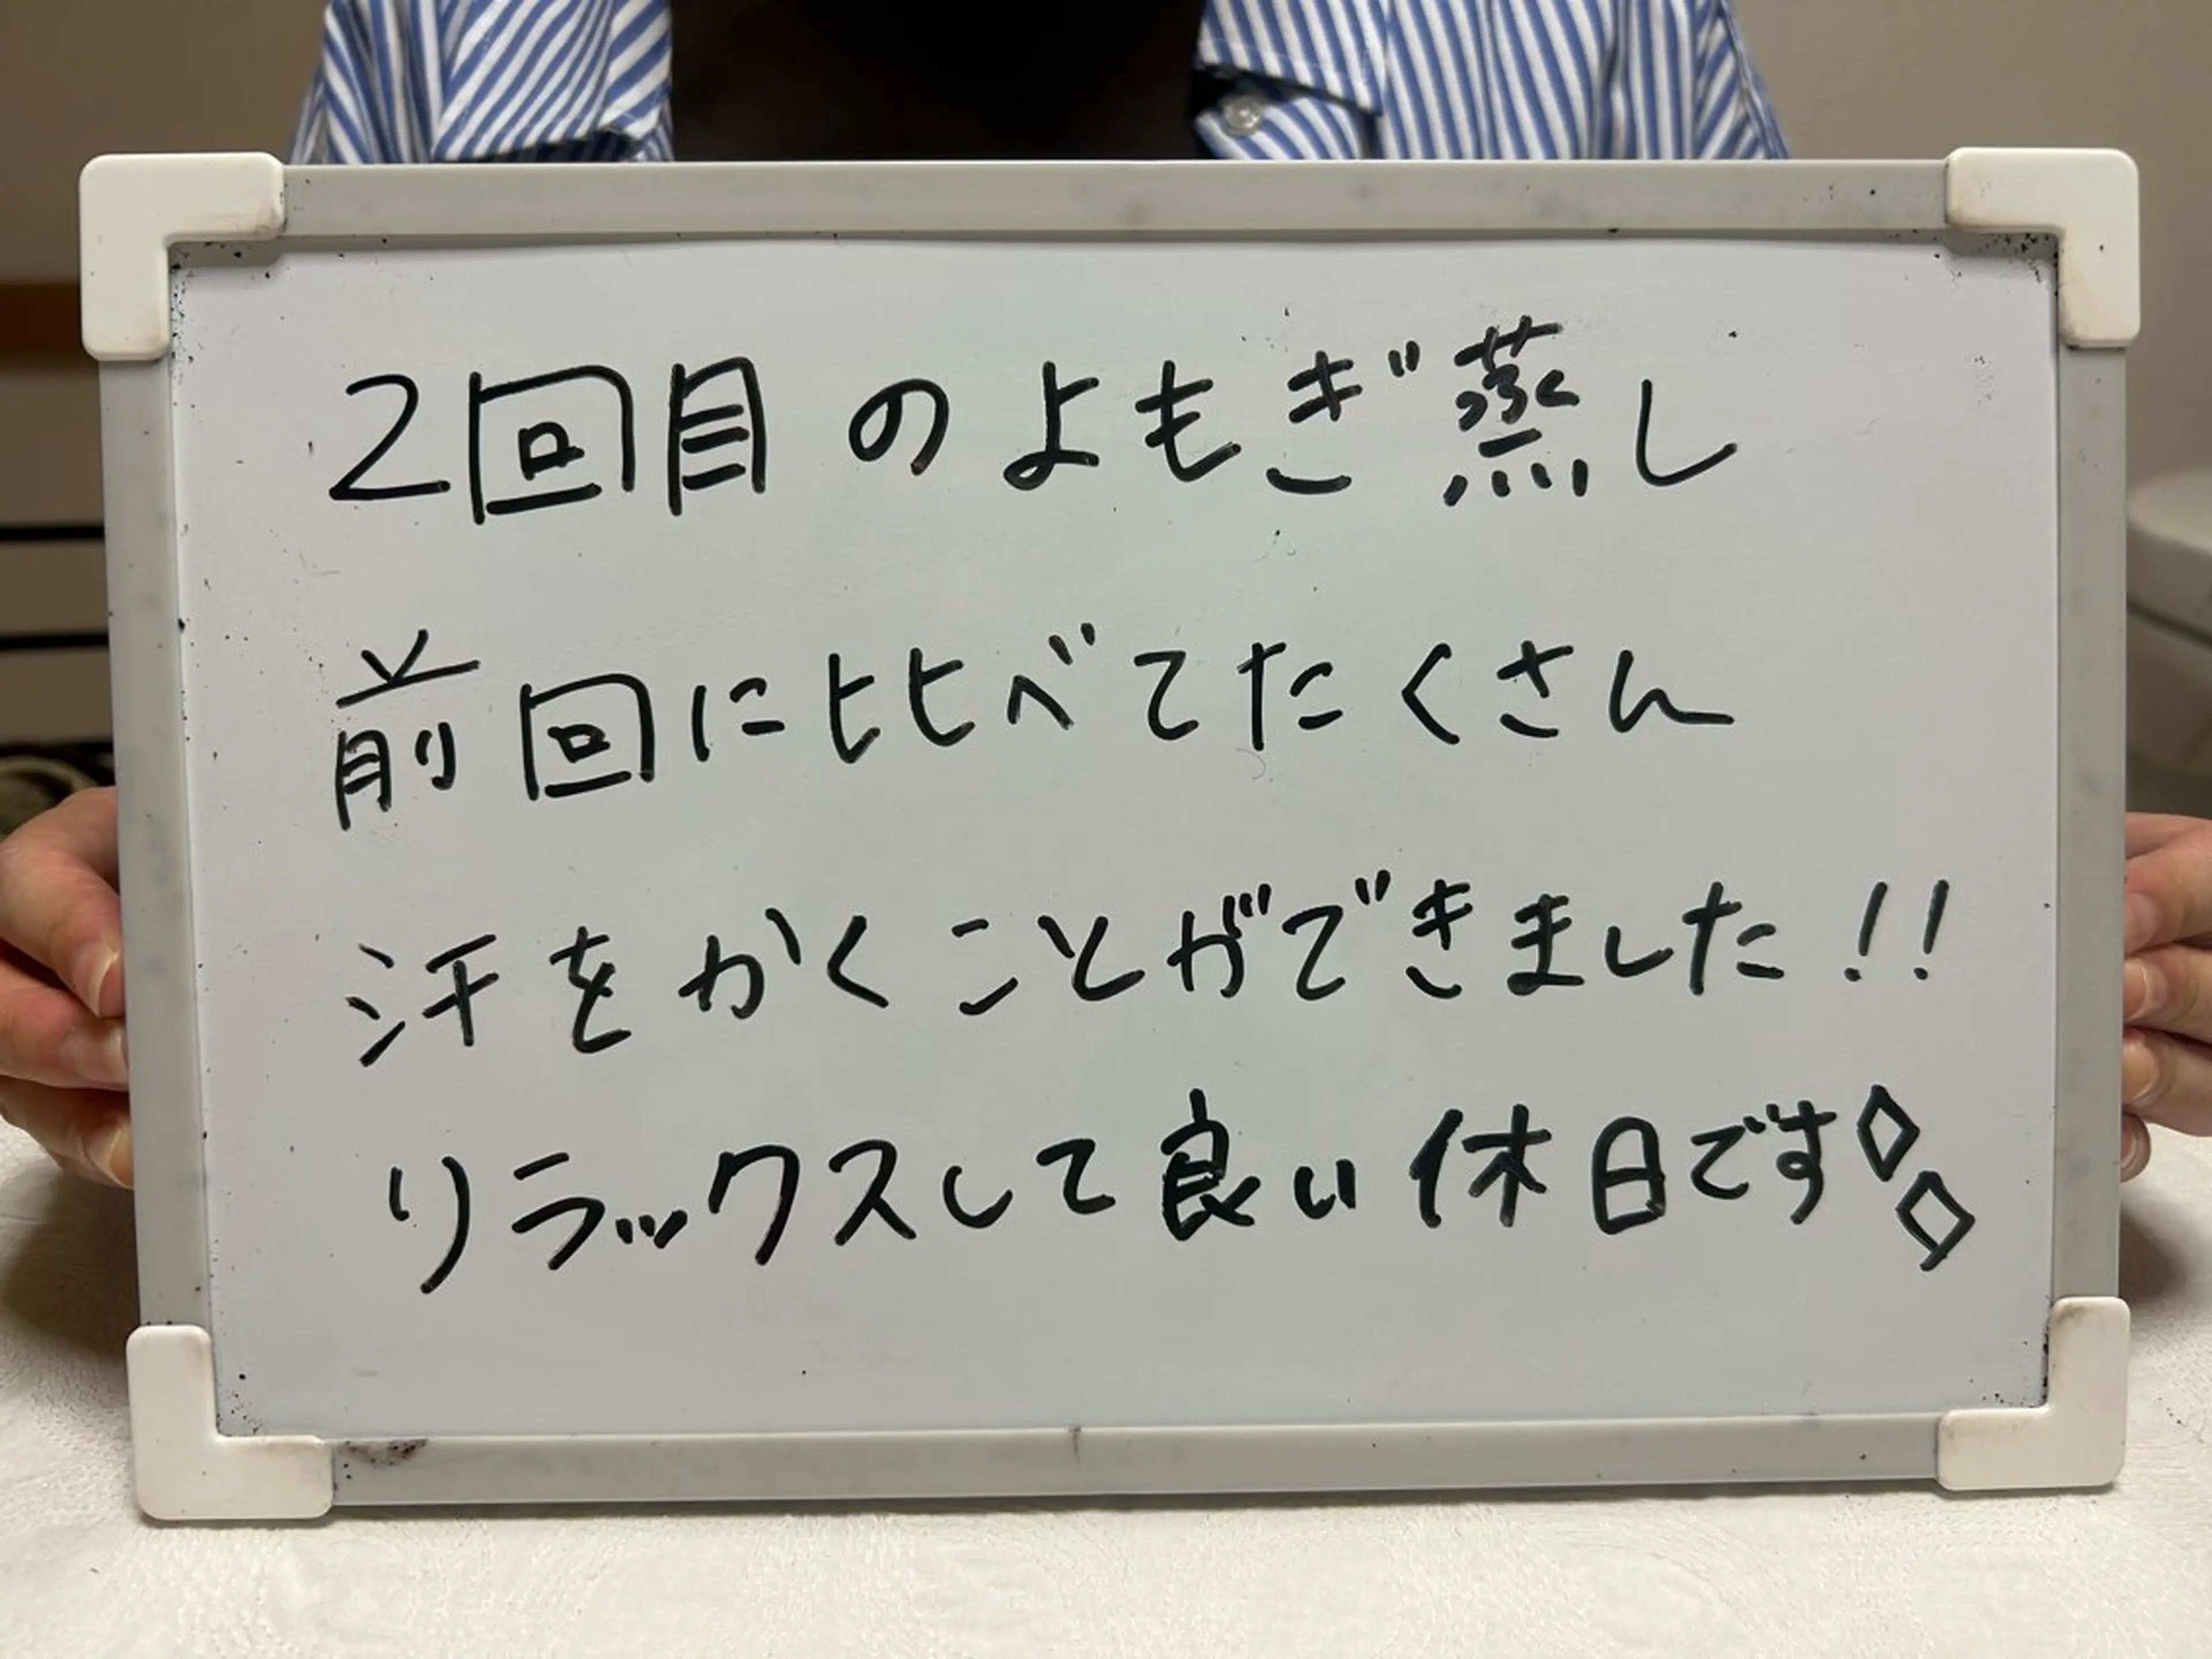 2回目のよもぎ蒸し
前回に比べてたくさん
汗をかくことができました!!
リラックスして良い休日です◇◇